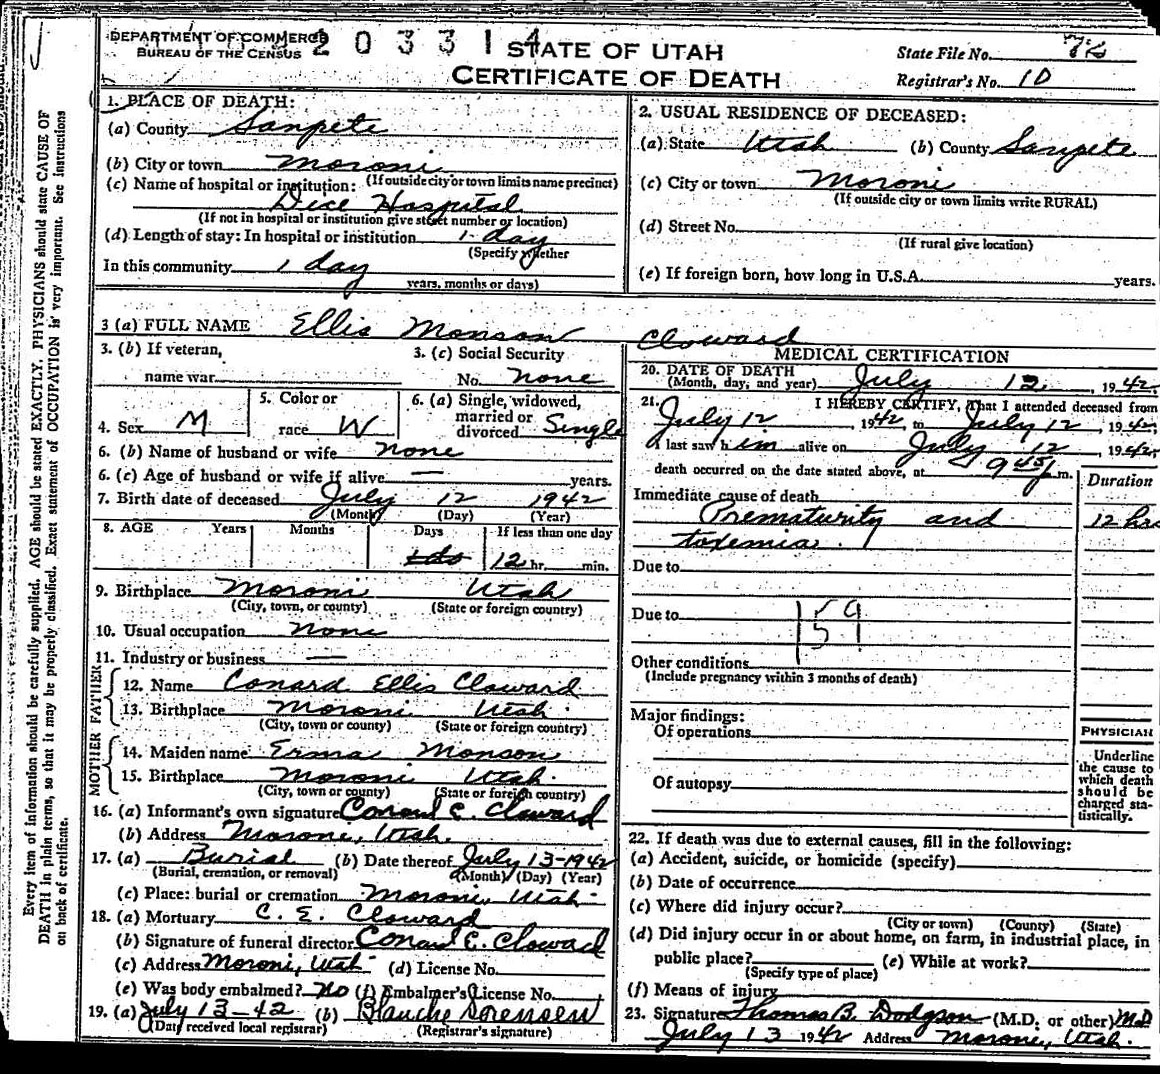 DEPARTMENT OF COMMERCE
BUREAU OF THE CENSUS
203314
STATE OF UTAH
CERTIFICATE OF DEATH
State File No.
Registrar's No. 10
1. PLACE OF DEATH:
(a) County Sanpete
(b) City or town Moroni
(If outside city or town limits name precinct)
(c) Name of hospital or institution:
Dice Hospital
(If not in hospital or institution give street number or location)
(d) Length of stay: In hospital or institution 1 day
(Specify whether
In this community 1 day
years, months or days)
2. USUAL RESIDENCE OF DECEASED:
(a) State Utah (b) County Sanpete
(c) City or town Moroni
(If outside city or town limits write RURAL)
(d) Street No.
(If rural give location)
(e) If foreign born, how long in U.S.A. years.
3 (a) FULL NAME Ellis Monson Cloward
3. (b) If veteran,
name war
3. (c) Social Security
No. none
4. Sex M
5. Color or
race W
6. (a) Single, widowed,
married or
divorced Single
6. (b) Name of husband or wife none
6. (c) Age of husband or wife if alive — years.
7. Birth date of deceased July 12 1942
(Month) (Day) (Year)
8. AGE Years Months Days If less than one day
12 hr. min.
9. Birthplace Moroni Utah
(City, town, or county) (State or foreign country)
10. Usual occupation none
11. Industry or business —
FATHER
12. Name Conard Ellis Cloward
13. Birthplace Moroni Utah
(City, town or county) (State or foreign country)
MOTHER
14. Maiden name Erma Monson
15. Birthplace Moroni Utah
(City, town or county) (State or foreign country)
16. (a) Informant's own signature Conard E. Cloward
(b) Address Moroni, Utah.
17. (a) Burial (b) Date thereof July 13-1942
(Burial, cremation, or removal) (Month) (Day) (Year)
(c) Place: burial or cremation Moroni, Utah
18. (a) Mortuary C. E. Cloward
(b) Signature of funeral director Conard E. Cloward
(c) Address Moroni, Utah (d) License No.
(e) Was body embalmed? No (f) Embalmer's License No.
19. (a) July 13-42 (b) Blanche Sorensen
(Date received local registrar) (Registrar's signature)
MEDICAL CERTIFICATION
20. DATE OF DEATH
(Month, day, and year) July 12, 1942.
21. I HEREBY CERTIFY, That I attended deceased from
July 12 1942, to July 12, 1942;
I last saw him alive on July 12, 1942;
death occurred on the date stated above, at 9 45 m.
Immediate cause of death
Prematurity and
toxemia.
Duration
12 hrs
Due to
Due to
159
Other conditions
(Include pregnancy within 3 months of death)
Major findings:
Of operations
Of autopsy
PHYSICIAN
Underline
the cause to
which death
should be
charged sta-
tistically.
22. If death was due to external causes, fill in the following:
(a) Accident, suicide, or homicide (specify)
(b) Date of occurrence
(c) Where did injury occur?
(City or town) (County) (State)
(d) Did injury occur in or about home, on farm, in industrial place, in
public place? (e) While at work?
(Specify type of place)
(f) Means of injury
23. Signature Thomas B. Dodgson (M.D. or other) M.D
July 13 1942 Address Moroni, Utah.
Every item of information should be carefully supplied. AGE should be stated EXACTLY. PHYSICIANS should state CAUSE OF
DEATH in plain terms, so that it may be properly classified. Exact statement of OCCUPATION is very important. See instructions
on back of certificate.